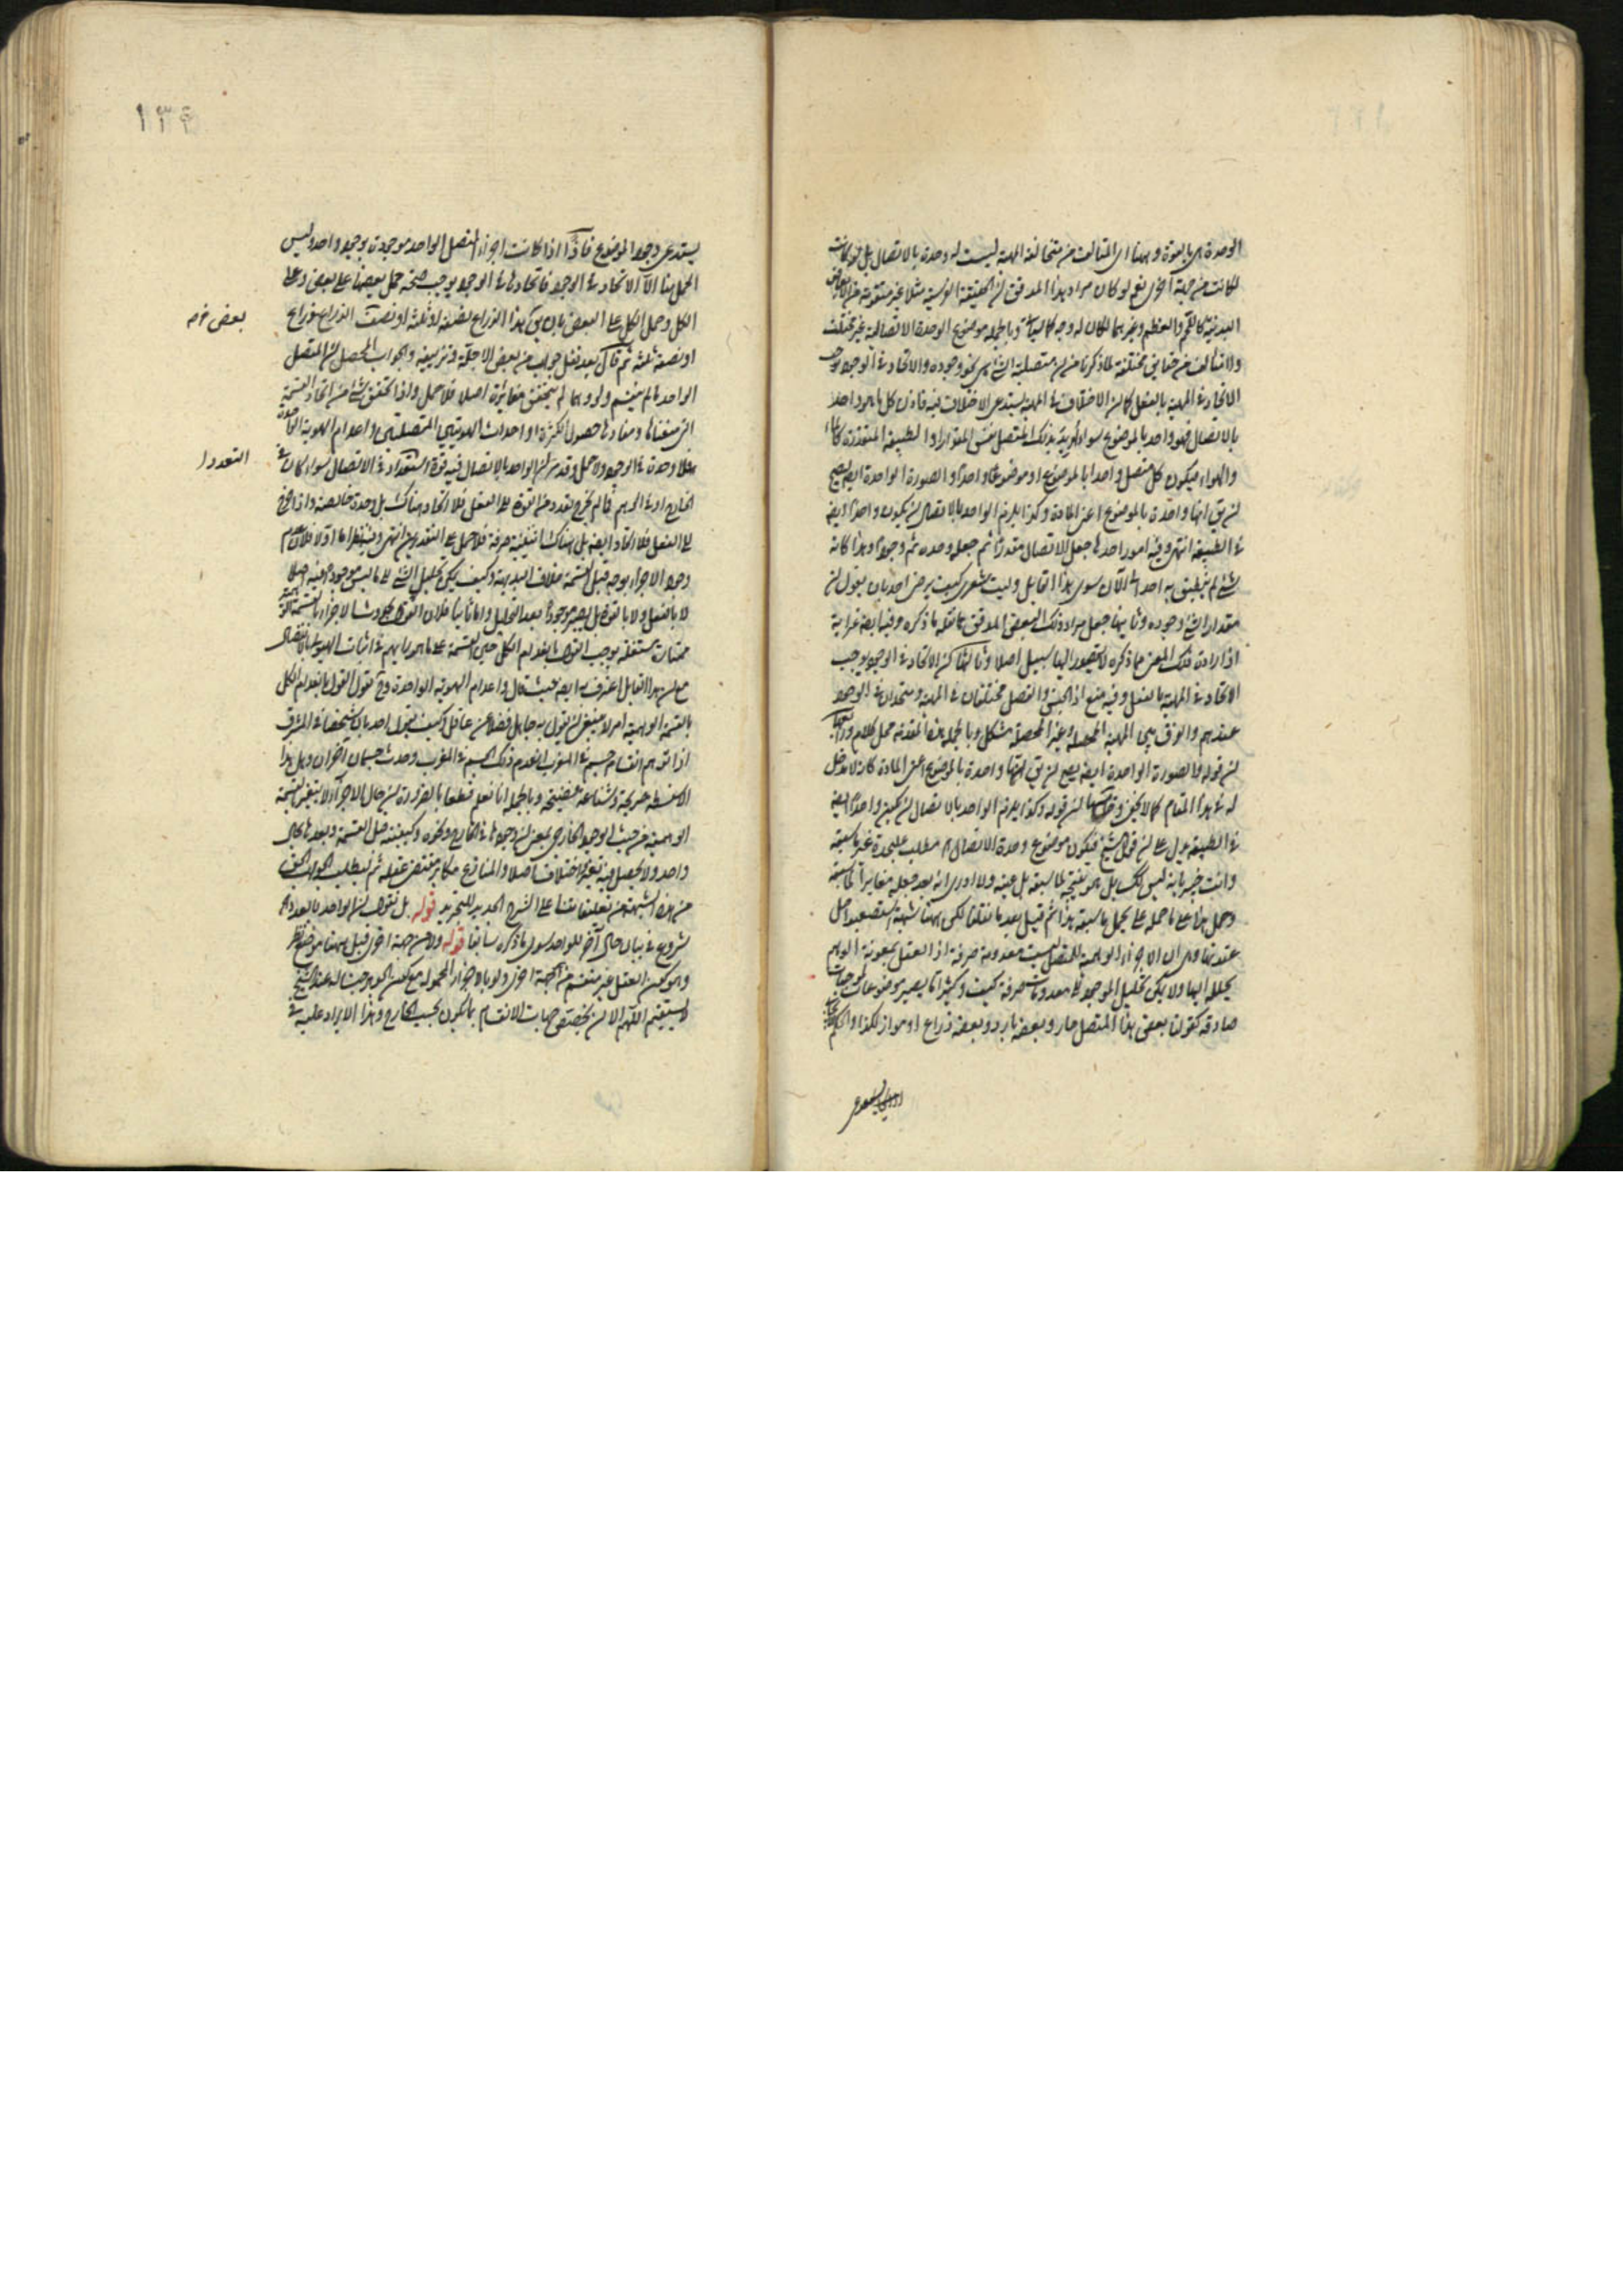 الوحدة هى بالقوة وههنا اى المتالف من متخالفة المهية ليست له وحدة بالاتصال بل لو كانت
لكانت من جهة اخرى نعم لو كان مراد هذا المدقق ان الحقيقة الفرسية مثلا غير متقومة من الاجزاء
البدنية كاللحم والعظم وغيرهما لكان له وجه كما سياتى وبالجملة موضوع الوحدة الاتصالية غير مختلف
ولا متالف من حقايق مختلفة لما ذكرنا من ان متصلية الشى هى نحو وجوده والاتحاد فى الوجود يوجب
الاتحاد فى المهية بالفعل كما ان الاختلاف فى المهية يستدعى الاختلاف فيه فاذن كل ما هو واحد
بالاتصال فهو واحد بالموضوع سواء اريد بذلك المتصل نفس المقدار او الطبيعة المتقدرة كالماء
والهواء فيكون كل متصل واحدا بالموضوع او موضوعا واحدا والصورة الواحدة ايضا يصح
ان يق انها واحدة بالموضوع اعنى المادة وكذا يلزم الواحد بالاتصال ان يكون واحدا ايضا
فى الطبيعة انتهى وفيه امور احدها جعل الاتصال مقدرا ثم جعله وحده ثم وجودا وهذا كانه
شى لم ينطبق به احد الى الآن سوى هذا القايل وليت شعرى كيف يرضى احد بان يقول ان
مقدار الشى وجوده وثانيها جعل مراد ذلك البعض المدقق ما نقله ما ذكره وفيه ايضا غرابة
اذ ارادة ذلك المعنى مما ذكره لا يتصور اليها سبيل اصلا وثالثها كون الاتحاد فى الوجود يوجب
الاتحاد فى المهية بالفعل وفيه منع اذ الجنس والفصل مختلفان فى المهية ومتحدان فى الوجود
عندهم والفرق بين المهية المحصلة وغير المحصلة مشكل وبالجملة هذه المقدمة محل كلام ورابعها
ان قوله والصورة الواحدة ايضا يصح ان يق انها واحدة بالموضوع اعنى المادة كانه لا مدخل
له فى هذا المقام كما لا يخفى وخامسها ان قوله وكذا يلزم الواحد بالاتصال ان يكون واحدا ايضا
فى الطبيعة يدل على ان قول الشيخ فيكون موضوع وحدة الاتصال اه مطلب عليحدة غير ما سبقه
وانت خبير بانه ليس كك بل هو نتيجة لما سبقه بل عينه ولا ادرى انه بعد جعله مغايرا لما سبقه
وحمل هذا على ما حمله على يحمل ما سبقه هذا ثم قيل بعد ما نقلنا لكن ههنا شبهة استصعب حل
عقدتها وهى ان الاجزاء الوهمية للمتصل ليست معدومة صرفة اذ العقل بمعونة الوهم
يحلله اليها ولا يمكن تحليل الموجود الى معدومات صرفة كيف وكثيرا ما يصير موضوعات لموجبات
صادقة كقولنا بعض هذا المتصل حار وبعضه بارد وبعضه ذراع او مواز لكذا والحكم
يستدعى وجود الموضوع فاذا اذا كانت اجزاء المتصل الواحد موجودة بوجود واحد وليس
الحمل هنا الا الاتحاد فى الوجود فاتحادها فى الوجود يوجب صحة حمل بعضها على بعض وعلى
الكل وحمل الكل على البعض بان يق هذا الذراع نصفه او ثلثه او نصف الذراع ذراع
بعض خ م
او نصفه ثلثه ثم قال بعد نقل جواب من بعض الاجلة وتزييفه والجواب المحصل ان المتصل
الواحد ما لم ينقسم ولو وهما لم يتحقق مغايرة اصلا فلا حمل واذا تحقق شى من انحاء القسمة
التى معناها ومفادها حصول الكثرة او احداث الهويتين المتصلتين واعدام الهوية الواحدة
فلا وحدة فى الوجود ولا حمل وقد مر ان الواحد بالاتصال فيه قوة واستعداد فى الاتصال سواء كان فى
التعدد ا
الخارج او فى الوهم فما لم يخرج تعدده من القوة الى الفعل فلا اتحاد هناك بل وحدة خالصة واذا خرج
الى الفعل فلا اتحاد ايضا بل هناك اثنينية صرفة فلا حمل على التقديرين انتهى وفيه نظر اما اولا فلان عدم
وجود الاجزاء بوجه قبل القسمة خلاف البديهة وكيف يمكن تحليل الشى الى ما ليس موجودا فيه اصلا
لا بالفعل ولا بالقوة بل يصير موجودا بعد التحليل واما ثانيا فلان القول بحدوث الاجزاء بالقسمة الوهمية
ممتازة مستقلة يوجب القول بانعدام الكل حين القسمة على ما هو رايهم فى اثبات الهيولى بالانفصال
مع ان هذا القايل اعترف به ايضا حيث قال واعدام الهوية الواحدة وح نقول القول بانعدام الكل
بالقسمة الوهمية امر لا ينبغى ان يقول به جاهل فضلا عن عاقل وكيف يقول احد بان شخصا فى المشرق
اذا توهم انقسام جسم فى المغرب انعدم ذلك الجسم فى المغرب وحدث جسمان آخران وهل هذا
الا سفسطة صريحة وشناعة فضيحة وبالجملة انا نعلم قطعا بالضرورة ان حال الاجزاء لا يتغير بالقسمة
الوهمية من حيث الوجود الخارجى بمعنى ان وجودها فى الخارج ونحوه وكيفيته قبل القسمة وبعدها بحال
واحد ولا يحصل فيه تغير واختلاف اصلا والمنازع مكابر مقتضى عقله ثم ليطلب الجواب الحق
من هذه الشبهة من تعليقاتنا على الشرح الجديد للتجريد قوله بل نقول ان الواحد بالعدد اه
شروع فى بيان حال آخر للواحد سوى ما ذكره سابقا قوله ولا من جهة اخرى قيل ههنا موضع نظر
وهو كون العقل غير منقسم من جهة اخرى ولو بالاجزاء المحمولة مع كون الجوهر جنسا له عند الشيخ
لا يستقيم اللهم الا ان يختص جهات الانقسام بما يكون بحسب الخارج وهذا الايراد عليه فى